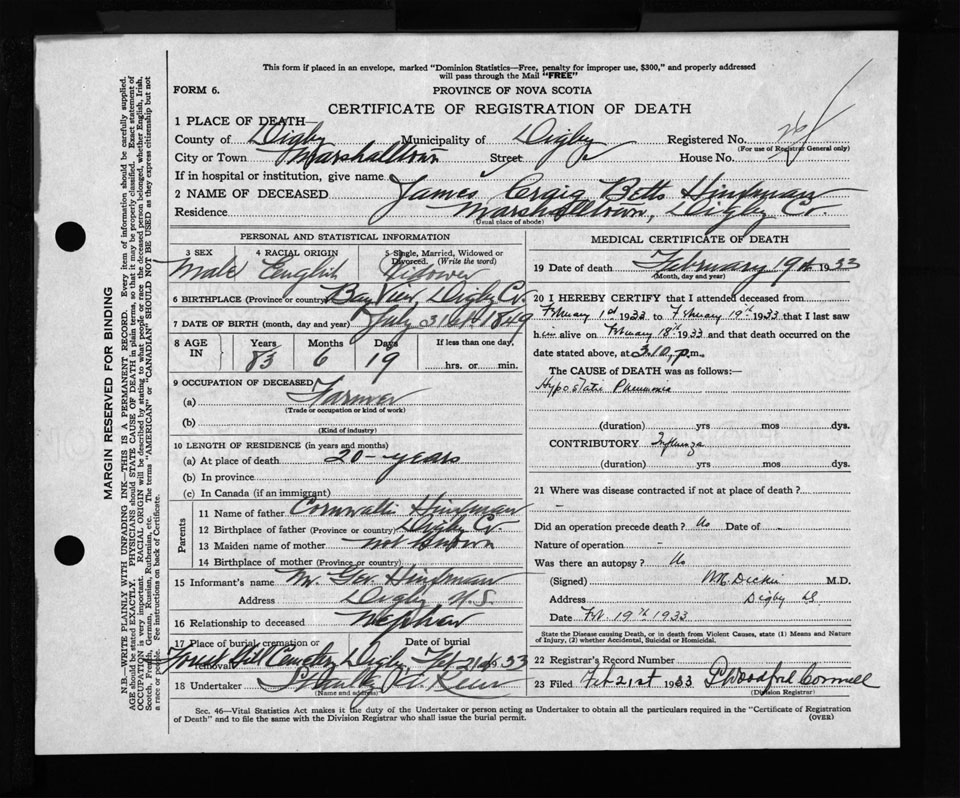 This form if placed in an envelope, marked "Dominion Statistics—Free, penalty for improper use, $300," and properly addressed
will pass through the Mail "FREE"
FORM 6.
PROVINCE OF NOVA SCOTIA
CERTIFICATE OF REGISTRATION OF DEATH
1 PLACE OF DEATH
County of Digby Municipality of Digby Registered No.
(For use of Registrar General only)
City or Town Marshalltown Street House No.
If in hospital or institution, give name
2 NAME OF DECEASED James Craig Betts Hindman
Residence Marshalltown, Digby Co.
(Usual place of abode)
PERSONAL AND STATISTICAL INFORMATION
3 SEX 4 RACIAL ORIGIN 5 Single, Married, Widowed or
Divorced. (Write the word)
Male English Widower
6 BIRTHPLACE (Province or country) Bay View, Digby Co.
7 DATE OF BIRTH (month, day and year) July 31st 1849
8 AGE IN Years Months Days If less than one day,
83 6 19 hrs. or min.
9 OCCUPATION OF DECEASED
(a) Farmer
(Trade or occupation or kind of work)
(b)
(Kind of industry)
10 LENGTH OF RESIDENCE (in years and months)
(a) At place of death 20-years
(b) In province
(c) In Canada (if an immigrant)
Parents
11 Name of father Cornwallis Hindman
12 Birthplace of father (Province or country) Digby Co.
13 Maiden name of mother not known
14 Birthplace of mother (Province or country)
15 Informant's name Geo. Hindman
Address Digby N.S.
16 Relationship to deceased Nephew
17 Place of burial, cremation or removal Date of burial
Hill Cemetery Digby, Feb 21st 1933
18 Undertaker
(Name and address)
MEDICAL CERTIFICATE OF DEATH
19 Date of death February 19th 1933
(Month, day and year)
20 I HEREBY CERTIFY that I attended deceased from
February 1st 1933 to February 19th 1933 that I last saw
him alive on February 18th 1933 and that death occurred on
date stated above, at 3.10, p.m.
The CAUSE of DEATH was as follows:
Hypostatic Pneumonia
(duration) yrs mos dys.
CONTRIBUTORY Influenza
(duration) yrs mos dys.
21 Where was disease contracted if not at place of death?
Did an operation precede death? No Date of -
Nature of operation -
Was there an autopsy? No
(Signed) M.D.
Address Digby NS
Date Feb. 19th 1933
State the Disease causing Death, or in death from Violent Causes, state (1) Means and Nature
of Injury, (2) whether Accidental, Suicidal or Homicidal.
22 Registrar's Record Number
23 Filed Feb 21st 1933 Woodford Connell
(Division Registrar)
Sec. 46—Vital Statistics Act makes it the duty of the Undertaker or person acting as Undertaker to obtain all the particulars required in the "Certificate of Registration
of Death" and to file the same with the Division Registrar who shall issue the burial permit.
(OVER)
MARGIN RESERVED FOR BINDING
N.B.—WRITE PLAINLY WITH UNFADING INK—THIS IS A PERMANENT RECORD. Every item of information should be carefully supplied.
AGE should be stated EXACTLY. PHYSICIANS should STATE CAUSE OF DEATH in plain terms, so that it may be properly classified. Exact statement of
OCCUPATION is very important. RACIAL ORIGIN will be described by stating to what people or race the deceased person belonged, whether English, Irish,
Scotch, French, German, Russian, Ruthenian, etc. The terms "AMERICAN" or "CANADIAN" SHOULD NOT BE USED as they express citizenship but not
a race or people. See instructions on back of Certificate.